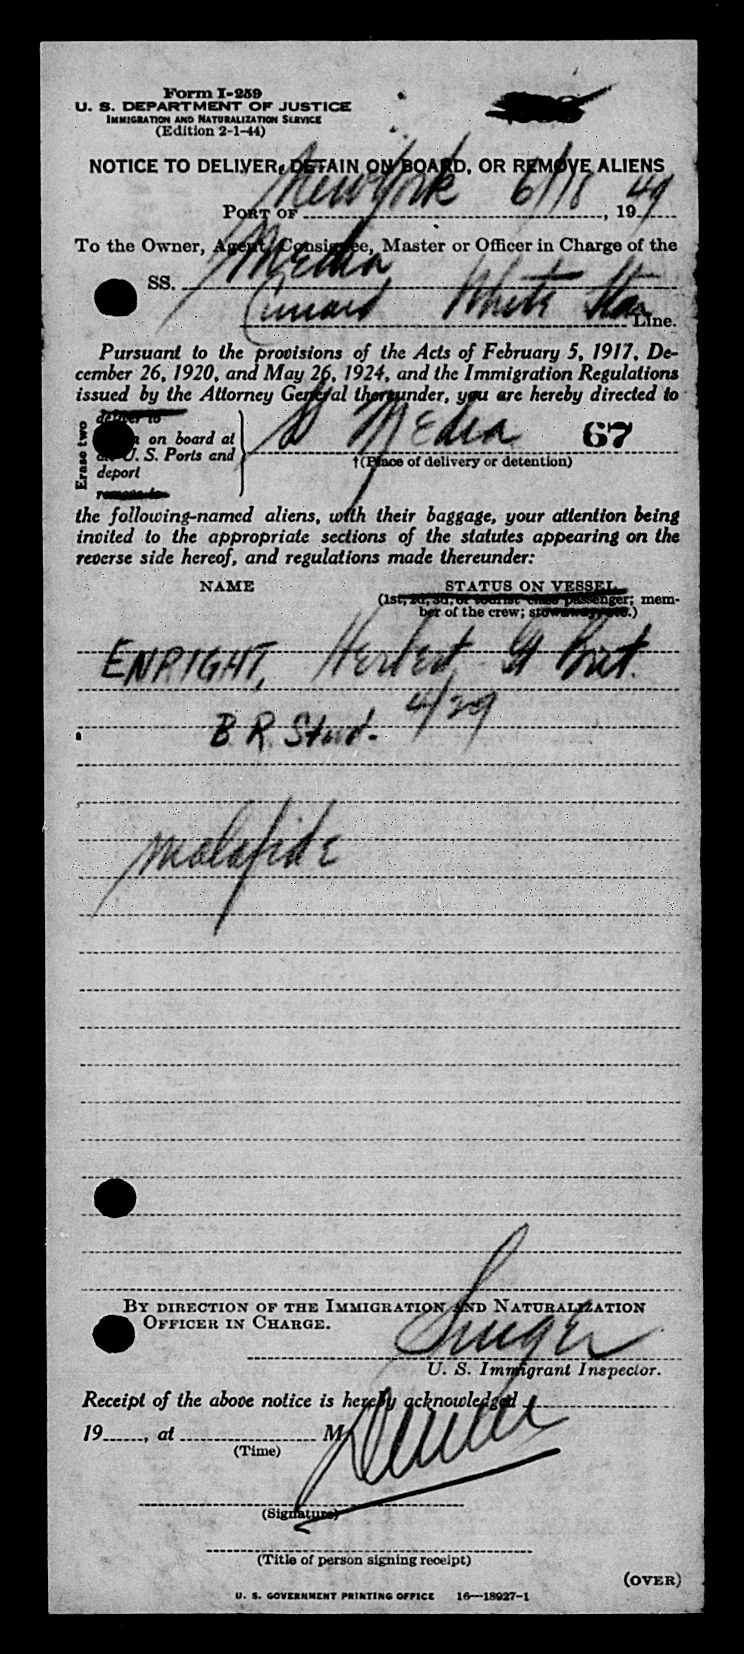 Form I-259
U. S. DEPARTMENT OF JUSTICE
IMMIGRATION AND NATURALIZATION SERVICE
(Edition 2-1-44)
NOTICE TO DELIVER, DETAIN ON BOARD, OR REMOVE ALIENS
PORT OF New York 6/18, 1949
To the Owner, Agent, Consignee, Master or Officer in Charge of the
SS. Media
Cunard White Star Line.
Pursuant to the provisions of the Acts of February 5, 1917, De-
cember 26, 1920, and May 26, 1924, and the Immigration Regulations
issued by the Attorney General thereunder, you are hereby directed to
Erase two
deliver to
on board at
U. S. Ports and
deport
remove to
Media 67
†(Place of delivery or detention)
the following-named aliens, with their baggage, your attention being
invited to the appropriate sections of the statutes appearing on the
reverse side hereof, and regulations made thereunder:
NAME STATUS ON VESSEL
(1st, 2d, 3d, or tourist class passenger; mem-
ber of the crew; stowaway, etc.)
ENRIGHT, Herbert Brit.
B. R. Stwd. 4/29
malafide
BY DIRECTION OF THE IMMIGRATION AND NATURALIZATION
OFFICER IN CHARGE.
Singer
U. S. Immigrant Inspector.
Receipt of the above notice is hereby acknowledged
19, at M.
(Time)
(Signature)
(Title of person signing receipt)
(OVER)
U. S. GOVERNMENT PRINTING OFFICE 16—18927-1